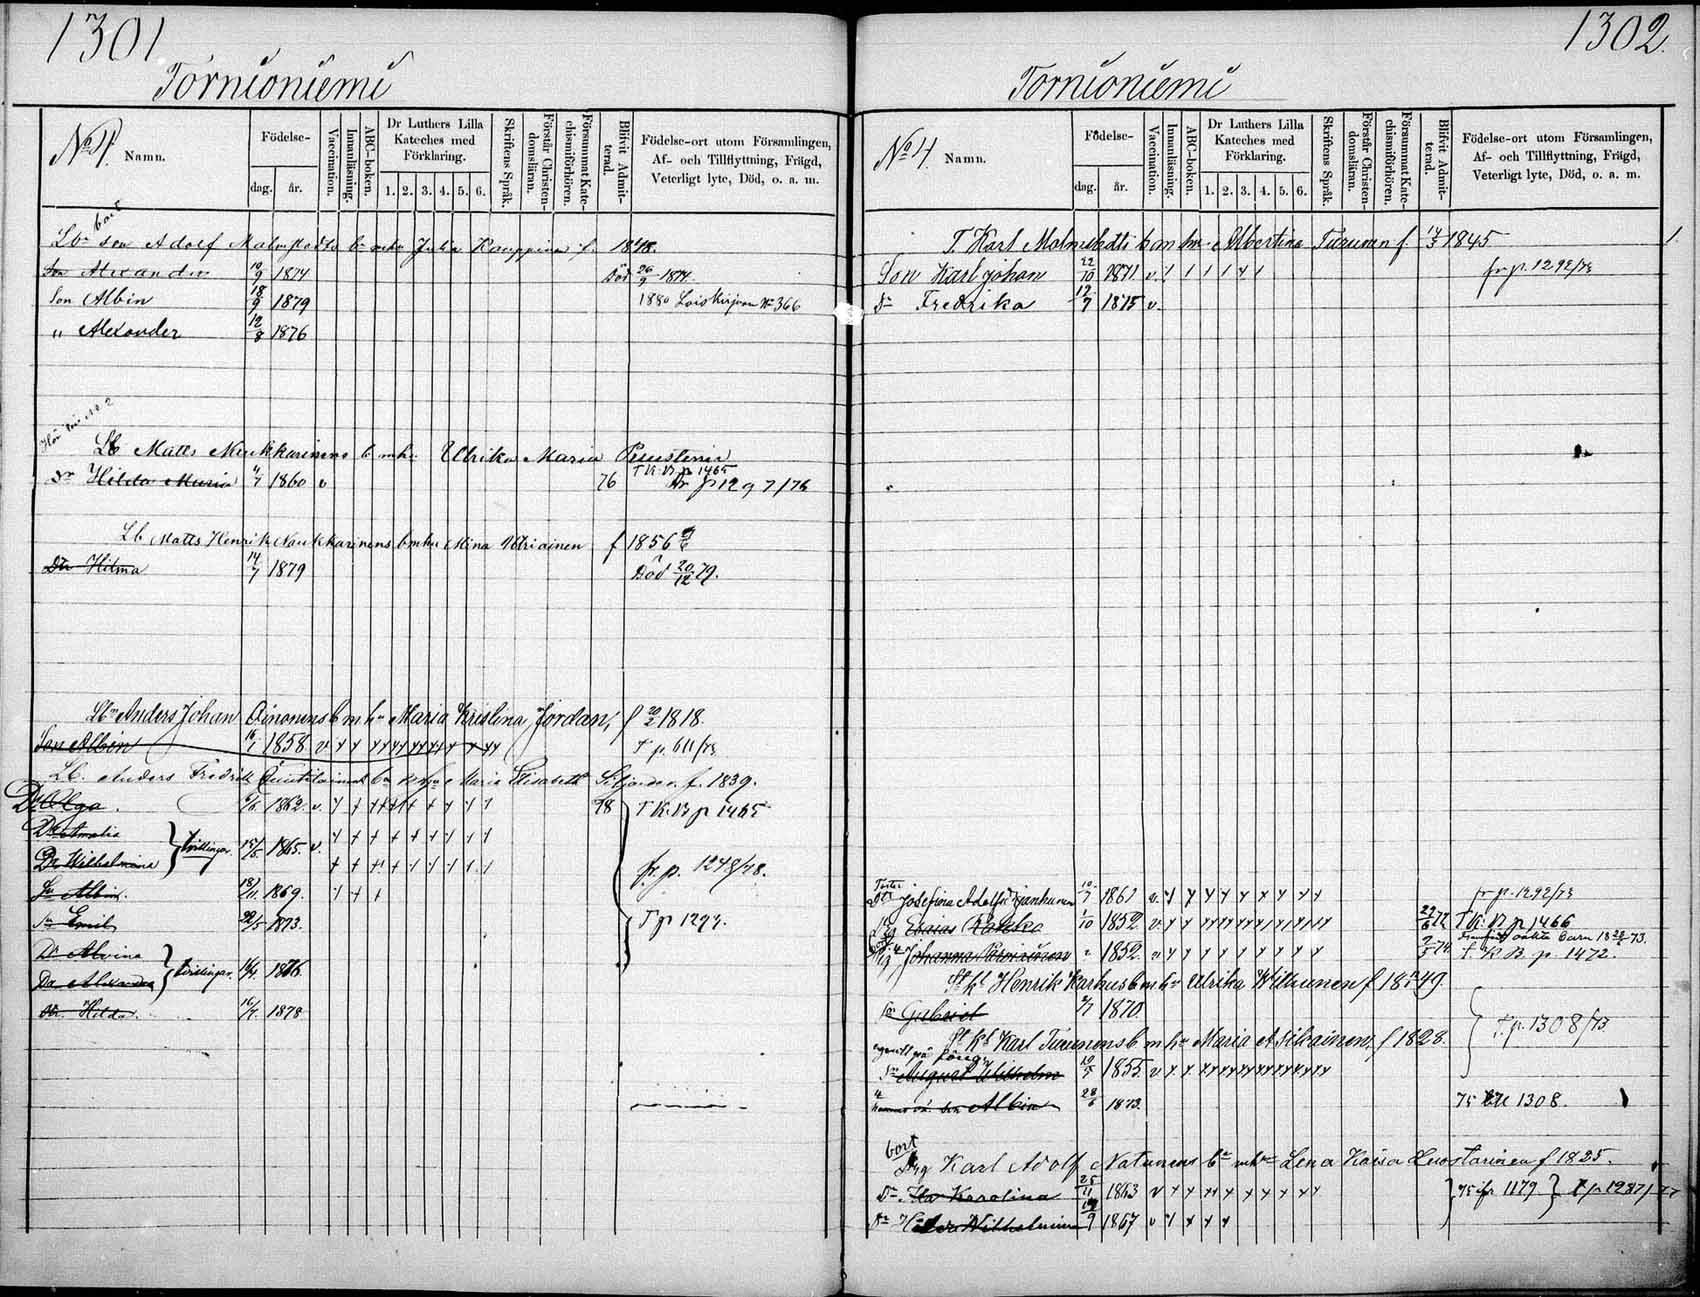 1301
Tornioniemi
No 4. Namn.
Födelse-
dag. år.
Vaccination.
Innanläsning.
ABC-boken.
Dr Luthers Lilla Kateches med Förklaring.
1. 2. 3. 4. 5. 6.
Skriftens Språk.
Förstår Christendomsläran.
Försummat Katechismiförhören.
Blifvit Admitterad.
Födelse-ort utom Församlingen,
Af- och Tillflyttning, Frägd,
Veterligt lyte, Död, o. a. m.
bort
Lbr son Adolf Malmstedts bn mhu Julia Kauppinen f. 1848.
Son Alexander 10/9 1874 Död 26/9 1874.
Son Albin 18/9 1879 1880 No 366
" Alexander 12/8 1876
Lb Matts Neukkarinens b mhu Ulrika Maria
Dr Hilda Maria 4/7 1860 v 76 T K.B p 1465
fr p 1297/76
Lb Matts Henrik Naukkarinens b mhu Mina f 1856
Dtr Hilma 14/7 1879 Död 20/12 79.
Lbn Anders Johan Oinonens b m hu Maria Kristina Jordan, f 20/2 1818.
Son Albin 16/1 1858 v T p. 611/73
Lb. Anders Fredrik Maria Elisabeth f. 1839.
Dr Olga. 6/6. 1862. v. 78 T K.B p 1465
Dr Amalia
Dr Wilhelmina } tvillingar. 15/5. 1865. v.
fr. p. 1248/78.
Sn Albin. 18/11. 1869.
Sn Emil 22/5 1873. T p 1294.
Dr Alvina
Dr Alexandra } tvillingar. 1876
Dr. Hilda. 16/7. 1878
1302.
Tornioniemi
No 4. Namn.
Födelse-
dag. år.
Vaccination.
Innanläsning.
ABC-boken.
Dr Luthers Lilla Kateches med Förklaring.
1. 2. 3. 4. 5. 6.
Skriftens Språk.
Förstår Christendomsläran.
Försummat Katechismiförhören.
Blifvit Admitterad.
Födelse-ort utom Församlingen,
Af- och Tillflyttning, Frägd,
Veterligt lyte, Död, o. a. m.
T. Karl Malmstedts b m hu Albertina Turunen f. 14/3 1845
Son Karl Johan 22/10 1871 v. fr p. 1292/73
Dr Fredrika 12/7 1875 v.
Dtr Josefina Adolfs Janhunen 10/7 1861 v. fr p. 1292/73
Dg Esaias 1/10 1852 v. 72 T K. B p 1466
Johanna 1852. v. 74 oäkta barn 18 73.
T. K B. p. 1472.
St kl Henrik Karhus b m hu Ulrika Wilhunen f 1849.
Son Gabriel 2/7 1870. T. p. 1308/73
St kl Karl Turunens b m hu Maria f 1828.
Sn August Wilhelm 10/5 1855. v
son Albin 28/6 1873. 75 till 1308.
bort
Drg Karl Adolf Natunens bn mhu Lena Kaisa Luostarinen f 1825.
Dr Ida Karolina 25/11 1863 v 75 ifr 1179 } T p 1287/77
Dr Wilhelmina 12/9 1867 v